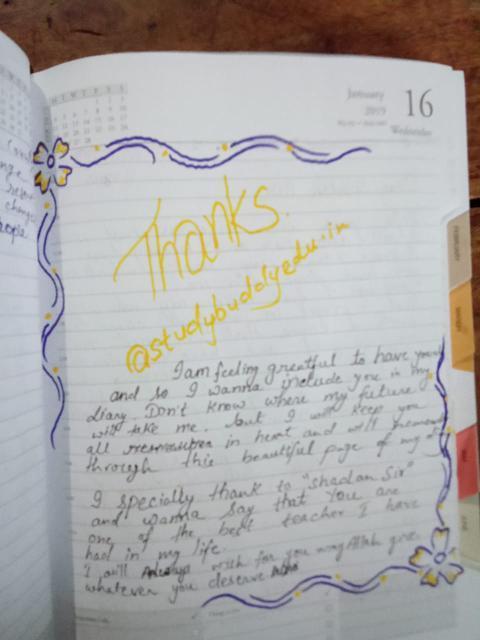 January
2019
16
Wednesday
Thanks.
@studybuddyedu.in
I am feeling greatful to have you
and so I wanna include you in my
diary. Don't know where my future
will take me. but I will keep you
all in heart and will
through this beautiful page of my
I specially thank to "Shadan Sir"
and wanna say that You are
one of the best teacher I have
had in my life.
I will wish for you may Allah give
whatever you deserve
FEBRUARY